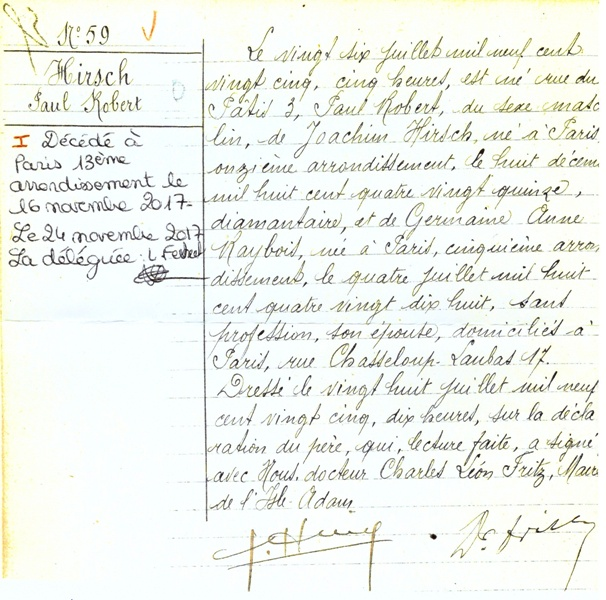 N° 59
Hirsch
Paul Robert
I Décédé à
Paris 13ème
arrondissement le
16 novembre 2017-
Le 24 novembre 2017
La déléguée :
Le vingt six juillet mil neuf cent
vingt cinq, cinq heures, est né rue du
Pâtis 3, Paul Robert, du sexe masc
lin, de Joachim Hirsch, né à Paris
onzième arrondissement, le huit décem
mil huit cent quatre vingt quinze,
diamantaire, et de Germaine Anne
Raybois, née à Paris, cinquième arron
dissement, le quatre juillet mil huit
cent quatre vingt dix huit, sans
profession, son épouse, domiciliés à
Paris, rue Chasseloup-Laubas 17.
Dressé le vingt huit juillet mil neuf
cent vingt cinq, dix heures, sur la décla
ration du père, qui, lecture faite, a signé
avec Nous, docteur Charles Léon Fritz, Maire
de l'Isle-Adam